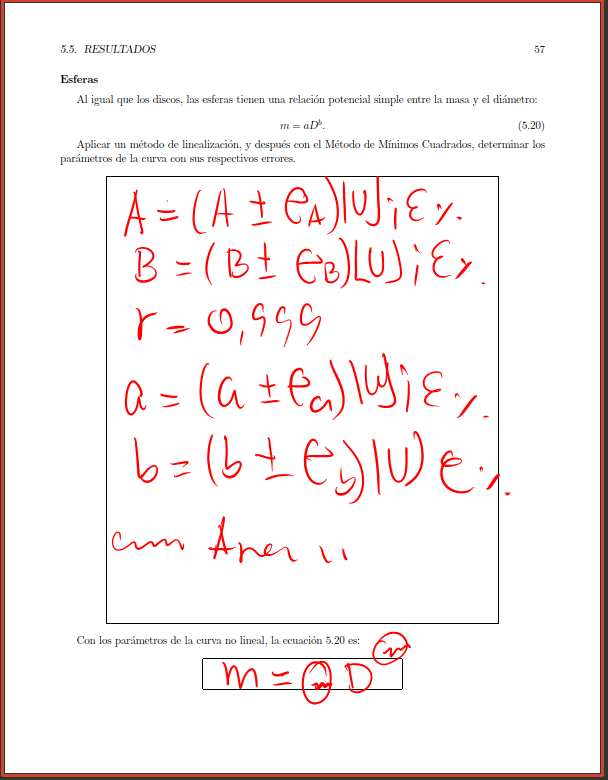 5.5. RESULTADOS 57
Esferas
Al igual que los discos, las esferas tienen una relación potencial simple entre la masa y el diámetro:
m = aDᵇ. (5.20)
Aplicar un método de linealización, y después con el Método de Mínimos Cuadrados, determinar los
parámetros de la curva con sus respectivos errores.
A = (A ± e_A)[U]; ε%.
B = (B ± e_B)[U]; ε%.
r = 0,999
a = (a ± e_a)[U]; ε%.
b = (b ± e_b)[U] ε%.
Con los parámetros de la curva no lineal, la ecuación 5.20 es:
m = D